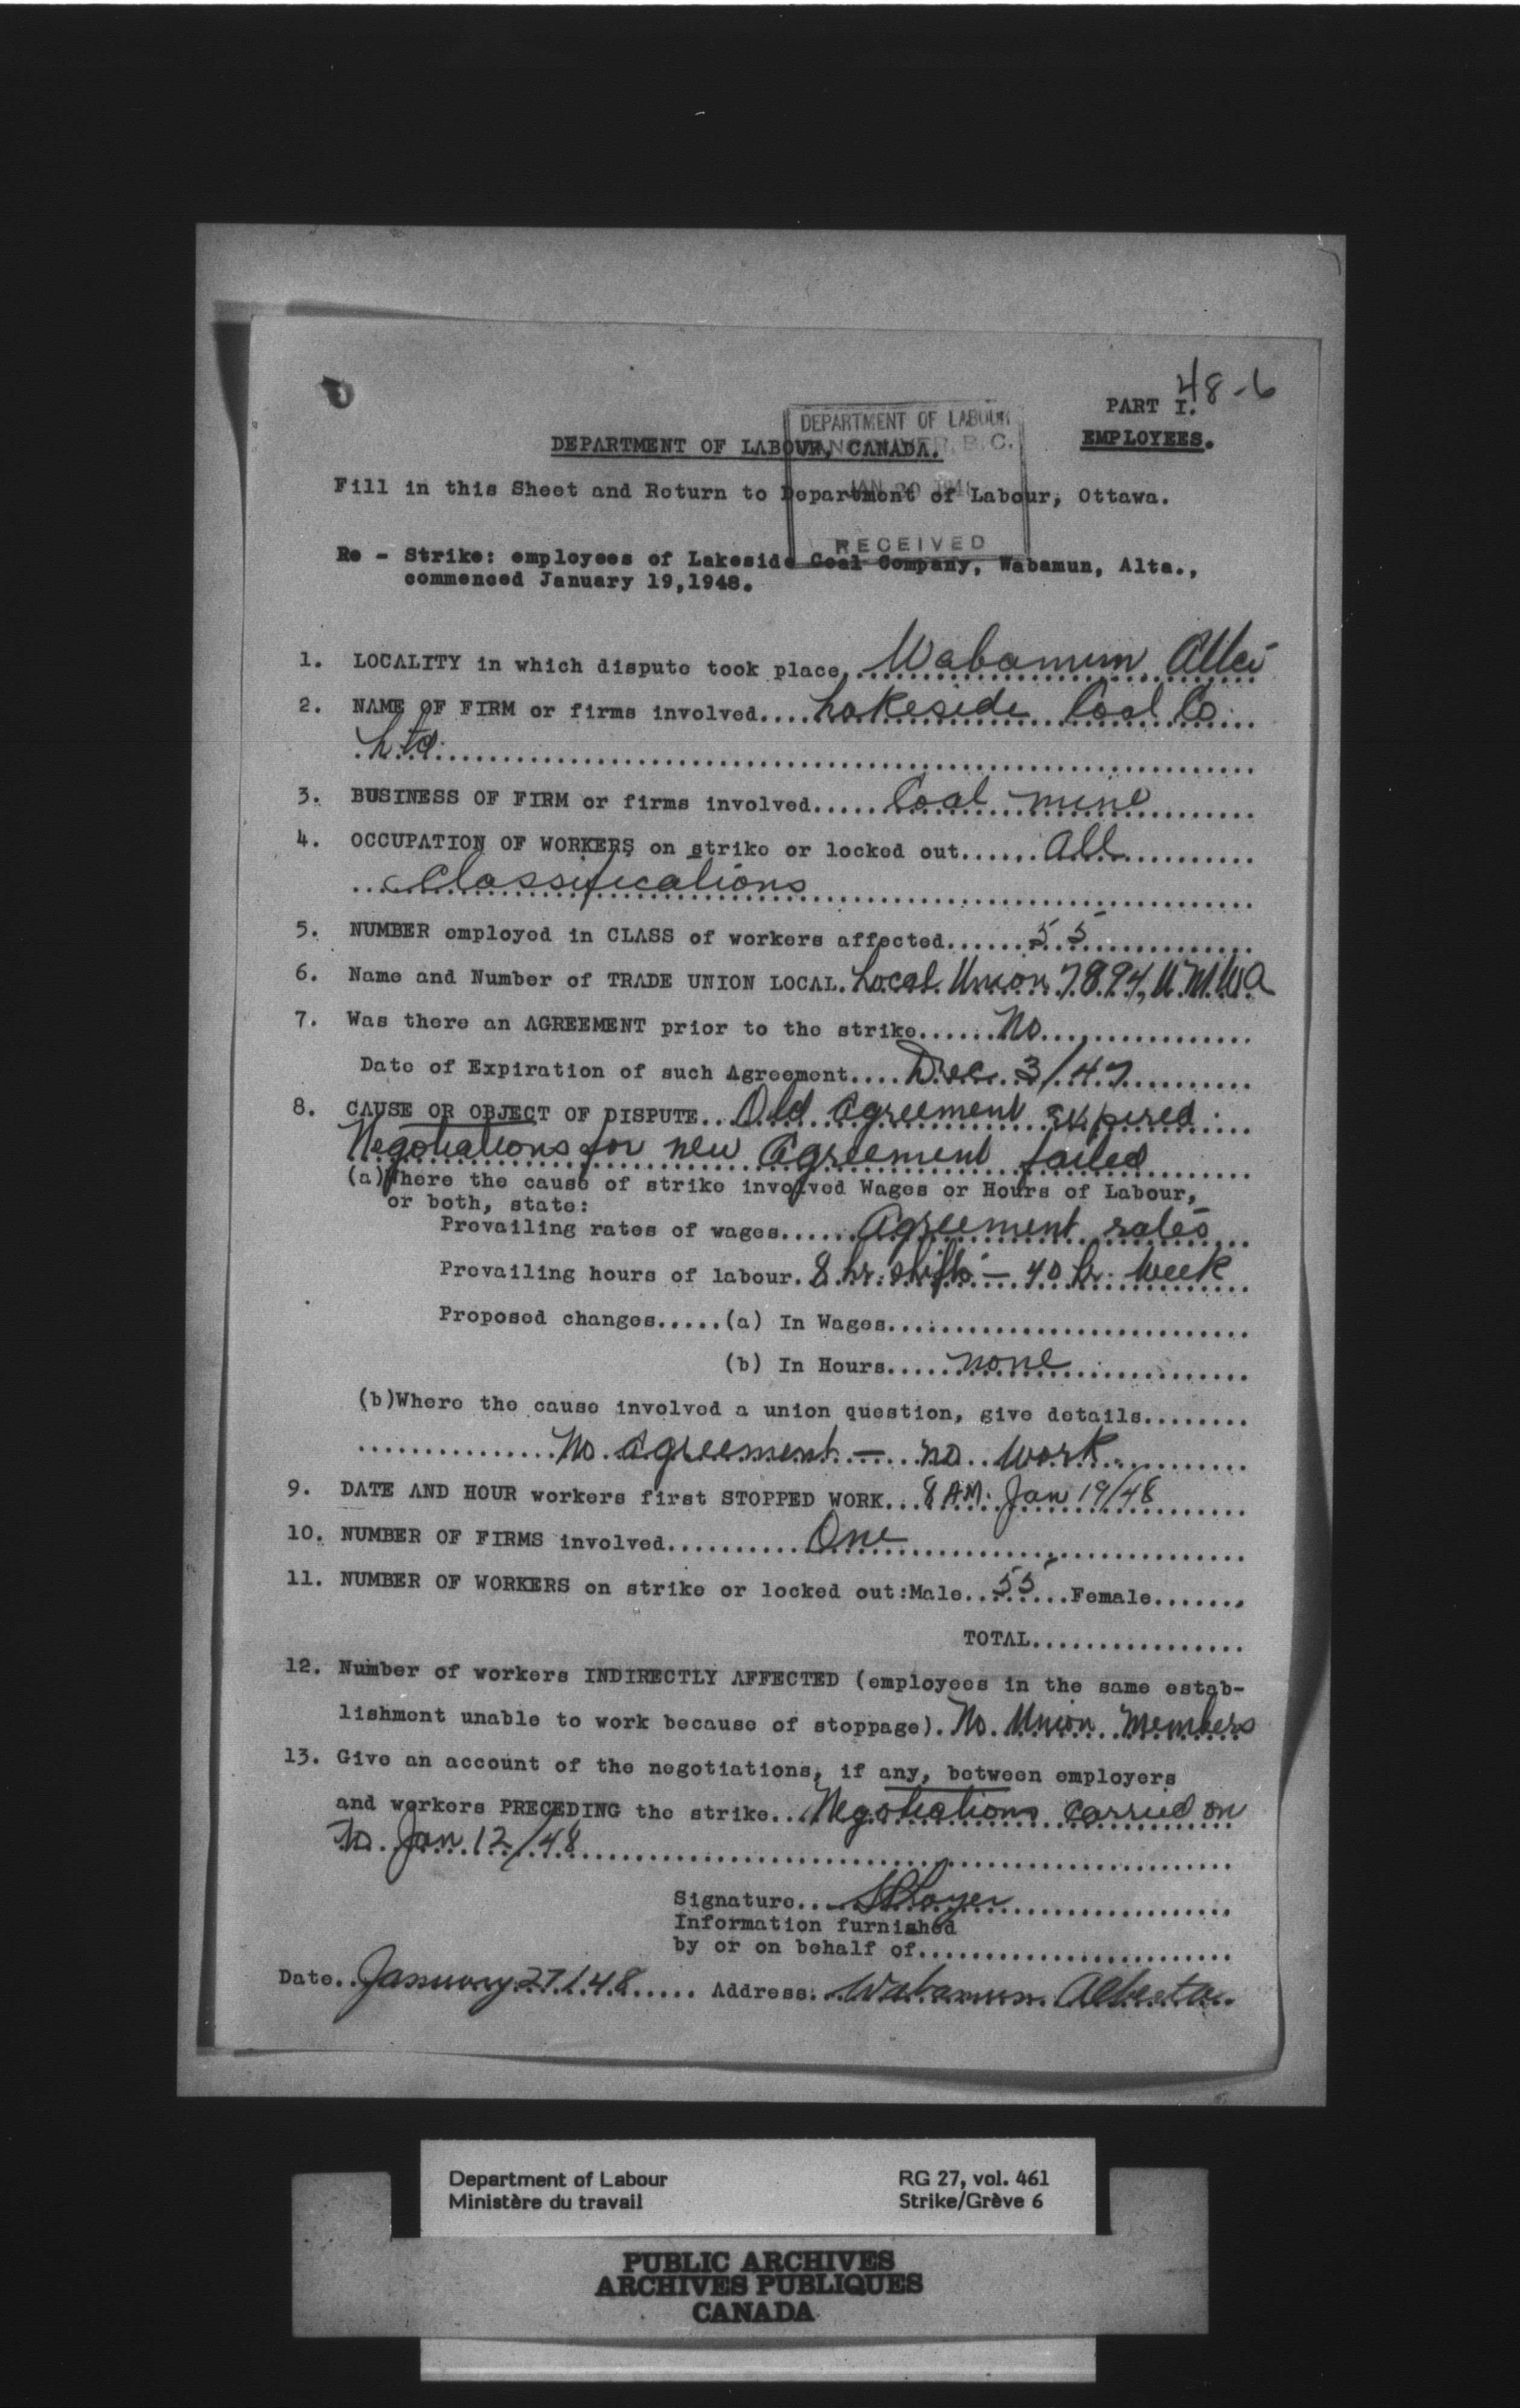 48-6
PART I.
EMPLOYEES.
DEPARTMENT OF LABOUR
VANCOUVER, B.C.
JAN 30 1948
RECEIVED
DEPARTMENT OF LABOUR, CANADA.
Fill in this Sheet and Return to Department of Labour, Ottawa.
Re - Strike: employees of Lakeside Coal Company, Wabamun, Alta.,
commenced January 19,1948.
1. LOCALITY in which dispute took place. Wabamum Alta
2. NAME OF FIRM or firms involved.... Lakeside Coal Co
Ltd.
3. BUSINESS OF FIRM or firms involved..... Coal mine
4. OCCUPATION OF WORKERS on strike or locked out...... all
classifications
5. NUMBER employed in CLASS of workers affected....... 55
6. Name and Number of TRADE UNION LOCAL. Local Union 7894, U.M.W.A
7. Was there an AGREEMENT prior to the strike...... No
Date of Expiration of such Agreement.... Dec. 31/47
8. CAUSE OR OBJECT OF DISPUTE.. Old agreement expired.
Negotiations for new Agreement failed
(a)Where the cause of strike involved Wages or Hours of Labour,
or both, state:
Prevailing rates of wages...... Agreement rates
Prevailing hours of labour. 8 hr. shift - 40 hr. week
Proposed changes.....(a) In Wages
(b) In Hours..... none
(b)Where the cause involved a union question, give details........
No agreement - no work
9. DATE AND HOUR workers first STOPPED WORK... 8 AM. Jan 19/48
10. NUMBER OF FIRMS involved........... One
11. NUMBER OF WORKERS on strike or locked out:Male.. 55 ...Female.......
TOTAL
12. Number of workers INDIRECTLY AFFECTED (employees in the same estab-
lishment unable to work because of stoppage). No. Union members
13. Give an account of the negotiations, if any, between employers
and workers PRECEDING the strike.. Negotiations carried on
to Jan 12/48
Signature...
Information furnished
by or on behalf of
Date.. January 27/48 ..... Address. Wabamun Alberta.
Department of Labour
Ministère du travail
RG 27, vol. 461
Strike/Grève 6
PUBLIC ARCHIVES
ARCHIVES PUBLIQUES
CANADA